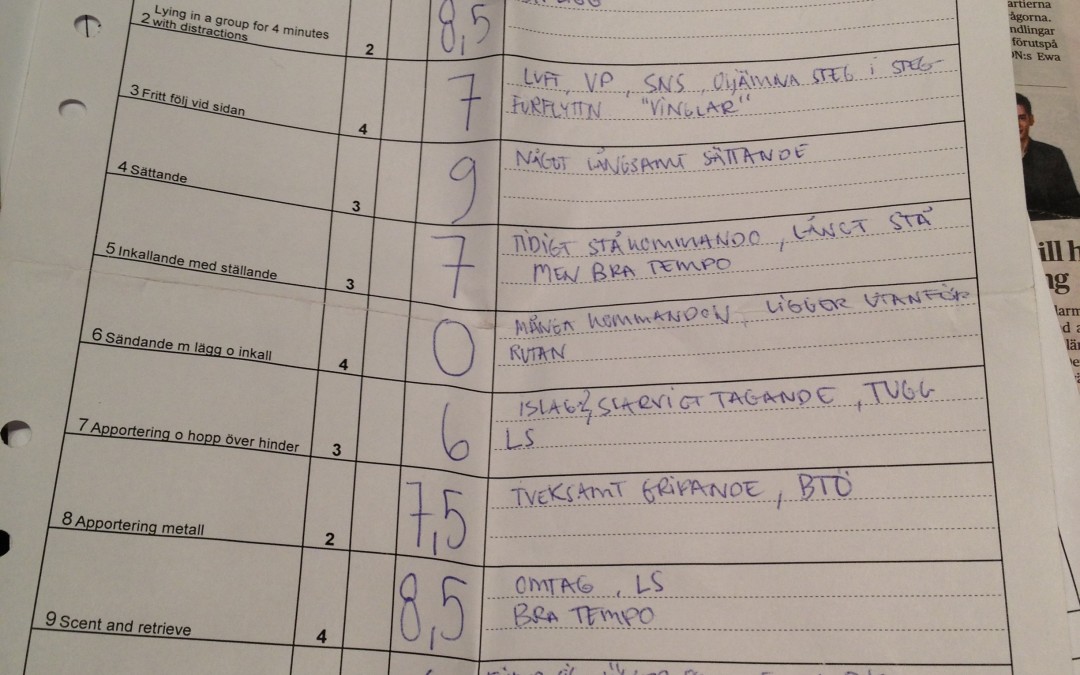 Lying in a group for 4 minutes
2 with distractions
2
8,5
3 Fritt följ vid sidan
4
7
LUFT, VP, SNS, OJÄMNA STEG i STEG-
FÖRFLYTTN "VINGLAR"
4 Sättande
3
9
NÅGOT LÅNGSAMT SÄTTANDE
5 Inkallande med ställande
3
7
TIDIGT STÅKOMMANDO, LÅNGT STÅ
MEN BRA TEMPO
6 Sändande m lägg o inkall
4
0
MÅNGA KOMMANDON, LIGGER UTANFÖR
RUTAN
7 Apportering o hopp över hinder
3
6
ISLAG, SLARVIGT TAGANDE, TUGG
LS
8 Apportering metall
2
7,5
TVEKSAMT GRIPANDE, BTÖ
9 Scent and retrieve
4
8,5
OMTAG, LS
BRA TEMPO
artierna
ågorna.
ndlingar
förutspå
N:s Ewa
ill h
ng